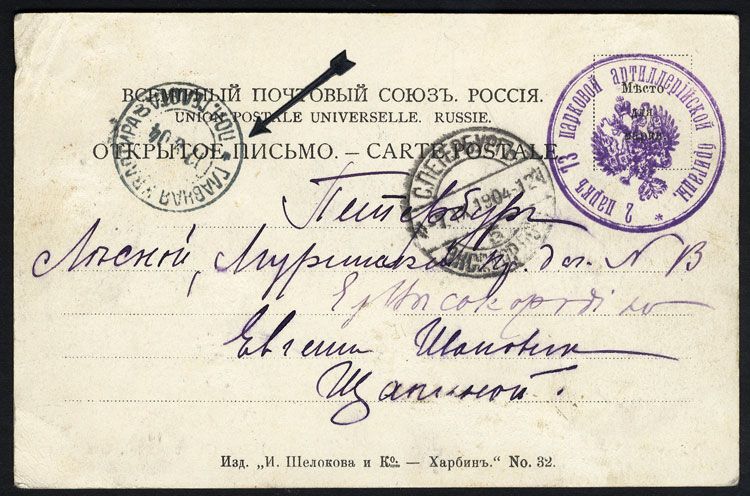 ВСЕМІРНЫЙ ПОЧТОВЫЙ СОЮЗЪ. РОССІЯ.
UNION POSTALE UNIVERSELLE. RUSSIE.
ОТКРЫТОЕ ПИСЬМО. – CARTE POSTALE
Мѣсто
для
марки
2 паркъ 73 парковой артиллерійской бригады.
ГЛАВНАЯ КВАРТИРА
04
С.ПЕТЕРБУРГЪ
1904
Петербург
Лѣсной, Муринскій пр. д. N
Е Высокородію
Евгеніи
Щапиной.
Изд. „И. Шелокова и Ко. – Харбинъ." No. 32.